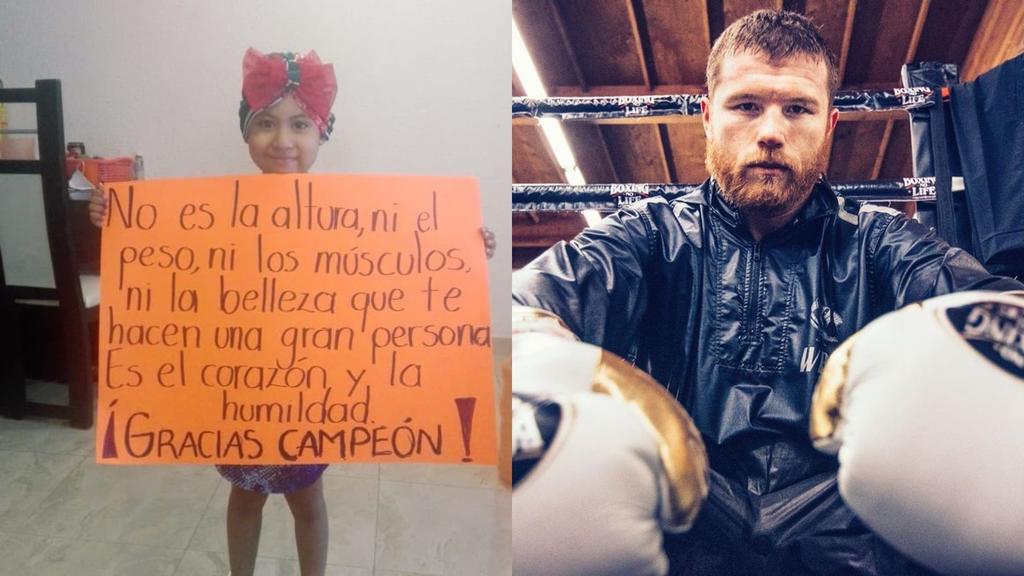 No es la altura, ni el
peso, ni los músculos,
ni la belleza que te
hacen una gran persona
Es el corazón y la
humildad.
¡GRACIAS CAMPEÓN!
BOXING
LIFE
BOXING
LIFE
BOXING
LIFE
BOXING
LIFE